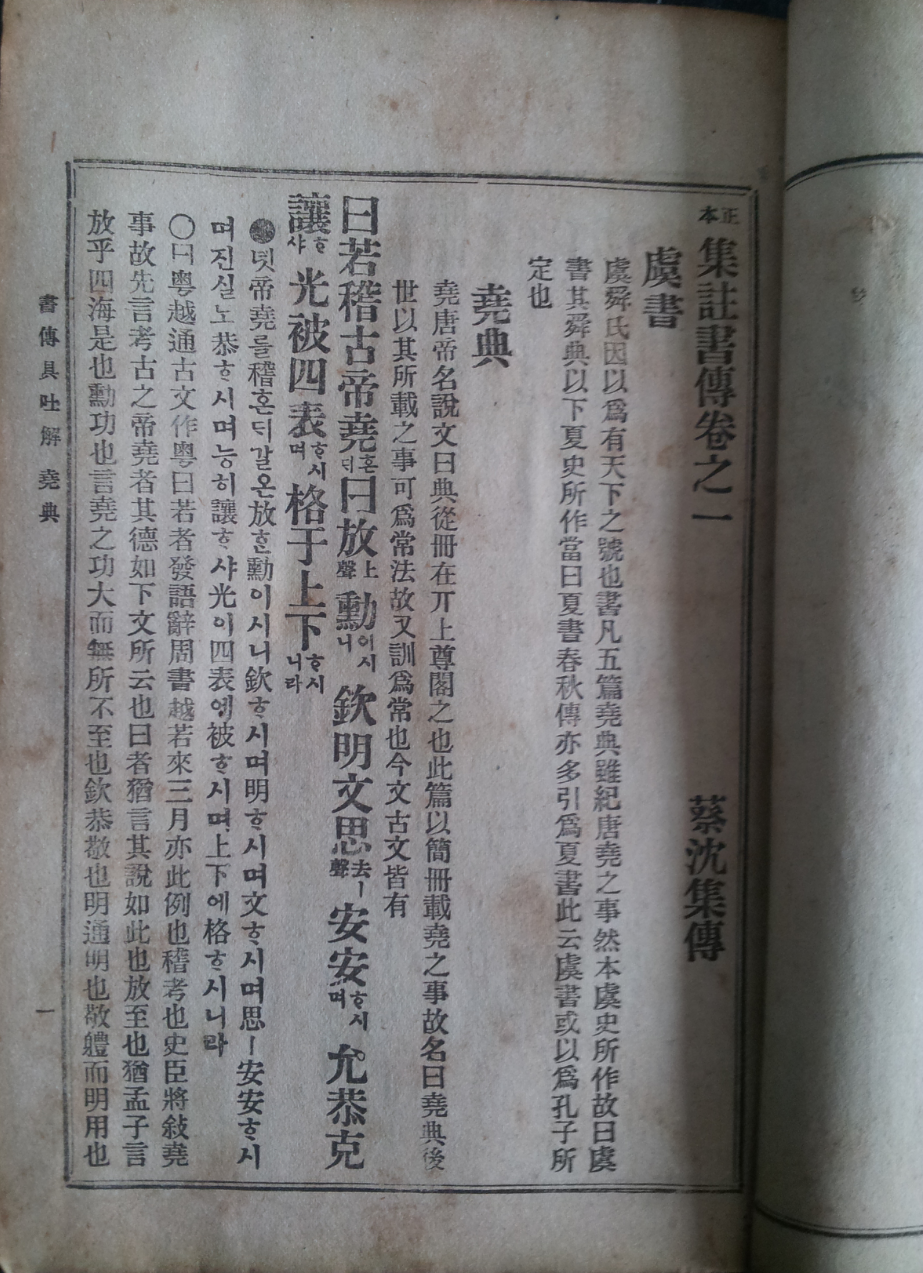 正本 集註書傳卷之一
蔡沈集傳
虞書
虞舜氏因以爲有天下之號也書凡五篇堯典雖紀唐堯之事然本虞史所作故曰虞
書其舜典以下夏史所作當曰夏書春秋傳亦多引爲夏書此云虞書或以爲孔子所
定也
堯典
堯唐帝名說文曰典從冊在丌上尊閣之也此篇以簡冊載堯之事故名曰堯典後
世以其所載之事可爲常法故又訓爲常也今文古文皆有
曰若稽古帝堯혼ᄃᆡ曰放上聲勳이시니欽明文思去聲ㅣ安安ᄒᆞ시며允恭克
讓ᄒᆞ샤光被四表ᄒᆞ시며格于上下ᄒᆞ시니라
녯帝堯를稽혼ᄃᆡ갈온放ᄒᆞᆫ勳이시니欽ᄒᆞ시며明ᄒᆞ시며文ᄒᆞ시며思ㅣ安安ᄒᆞ시
며진실노恭ᄒᆞ시며능히讓ᄒᆞ샤光이四表에被ᄒᆞ시며上下에格ᄒᆞ시니라
○曰粤越通古文作粤曰若者發語辭周書越若來三月亦此例也稽考也史臣將敍堯
事故先言考古之帝堯者其德如下文所云也曰者猶言其說如此也放至也猶孟子言
放乎四海是也勳功也言堯之功大而無所不至也欽恭敬也明通明也敬軆而明用也
書傳具吐解 堯典
一